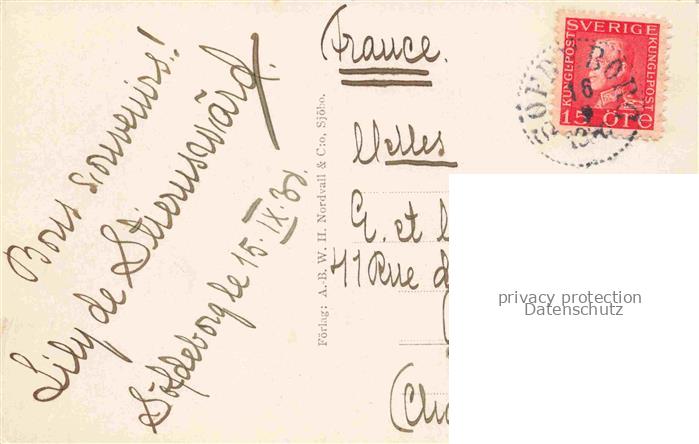 Bons souvenirs!!
Lily de Stiernswärd.
Söfdeborg le 15.IX.30.
Förlag: A.-B. W. H. Nordvall & C:o, Sjöbo.
France.
Melles
G. et
41 Rue d
SVERIGE
KUNGL·POST
KUNGL·POST
15 ÖRE
privacy protection
Datenschutz